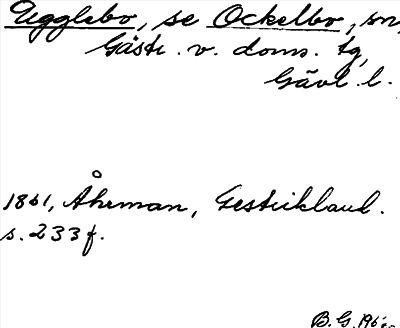 Ugglebo, se Ockelbo, sn,
Gästr. v. doms. tg,
Gävl. l.
1861, Åhrman, Gestrikland.
s. 233 f.
B. G. 196